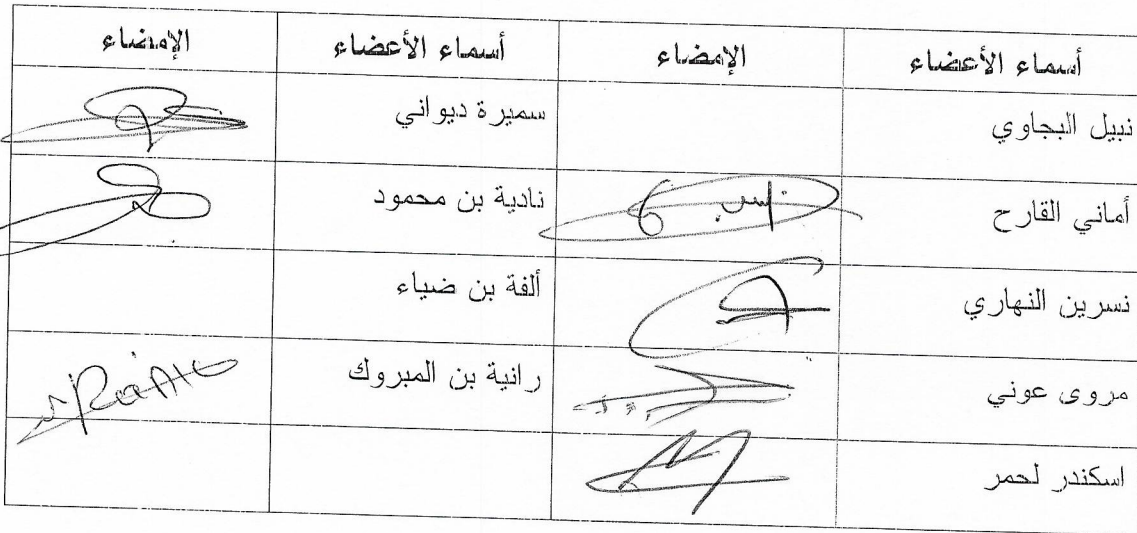 أسماء الأعضاء الإمضاء أسماء الأعضاء الإمضاء
نبيل البجاوي سميرة ديواني
أماني القارح نادية بن محمود
نسرين النهاري ألفة بن ضياء
مروى عوني رانية بن المبروك
اسكندر لحمر